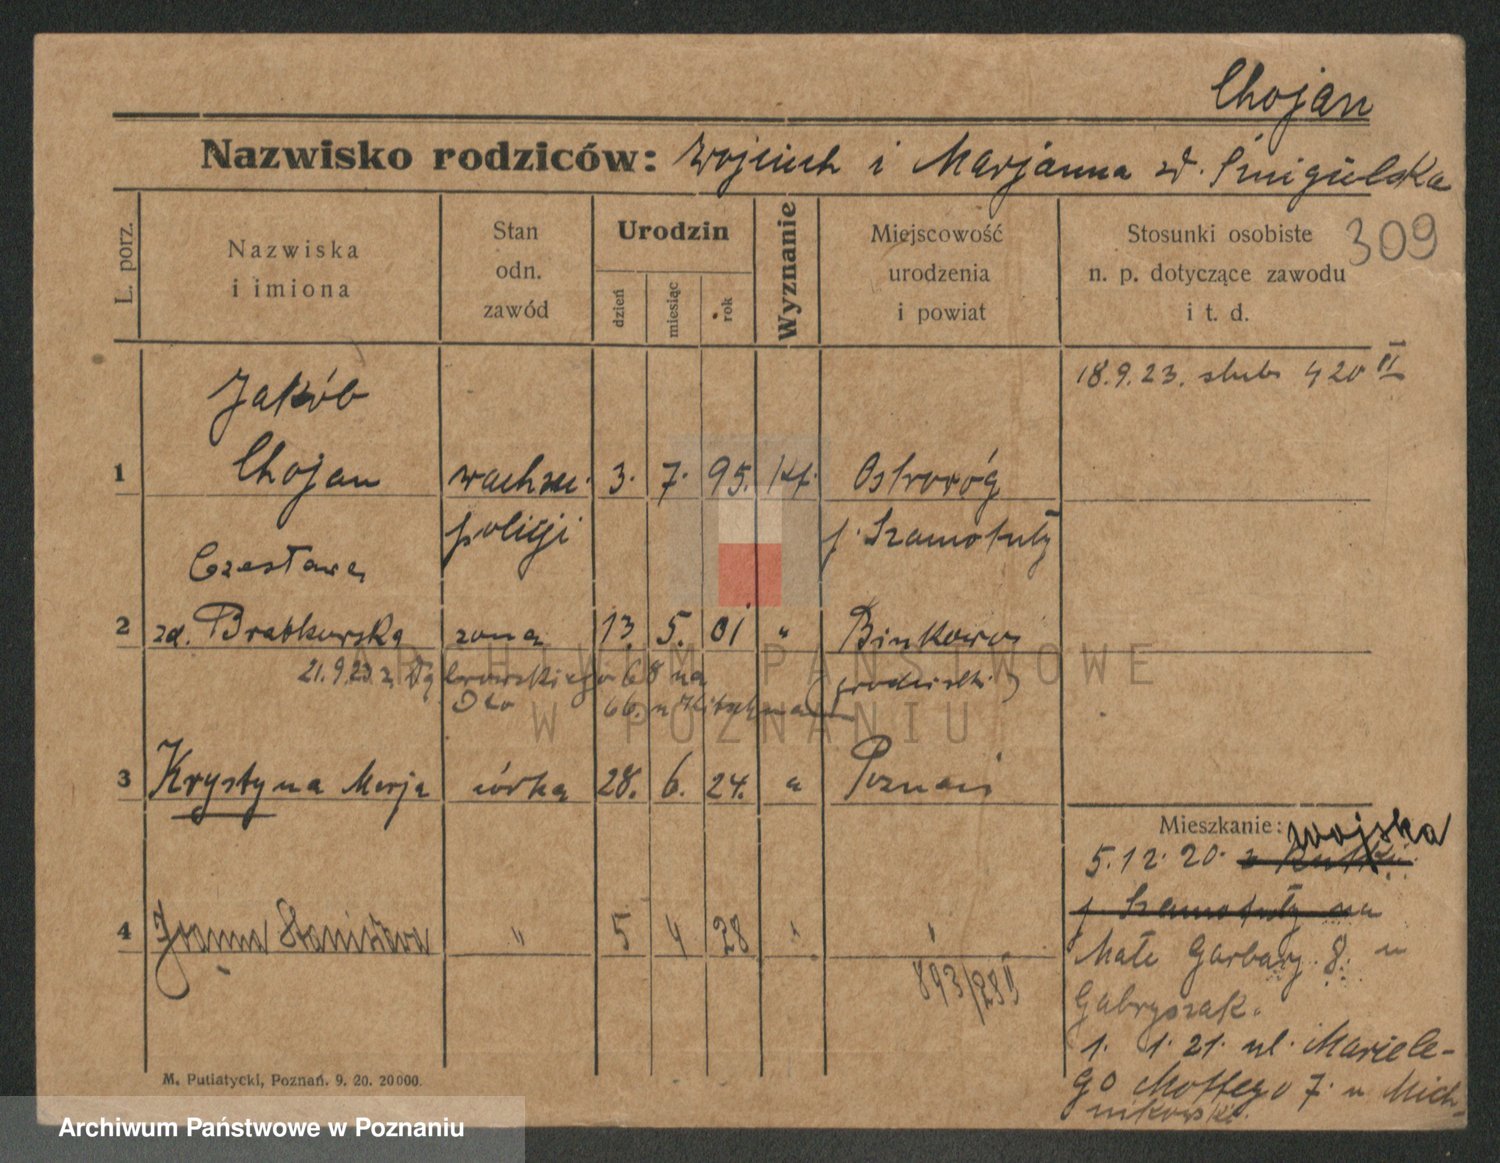 Chojan
Nazwisko rodziców: Wojciech i Marjanna zd. Śmigielska
309
L. porz.
Nazwiska
i imiona
Stan
odn.
zawód
Urodzin
dzień
miesiąc
rok
Wyznanie
Miejscowość
urodzenia
i powiat
Stosunki osobiste
n. p. dotyczące zawodu
i t. d.
18.9.23. ślub 420 II
Jakób
1 Chojan wachm. 3. 7. 95. kt. Ostroróg
policji p. Szamotuły
Czesława
2 zd. Bratkowska żona 13. 5. 01 " Binkowo
21.9.23 z Dąbrowskiego 68 na (grodziski)
66.
3 Krystyna Marja córka 28. 6. 24. " Poznań
Mieszkanie: wojska
5.12.20.
p. Szamotuły na
4 Joanna Stanisława " 5 4 28 " "
893/28 II
Małe Garbary 8. u
Gabryszak.
1. 1. 21. ul. Marcele-
go Mottego 7. u Mich-
nikowski
M. Putiatycki, Poznań. 9. 20. 20000.
ARCHIWUM PAŃSTWOWE
W POZNANIU
Archiwum Państwowe w Poznaniu